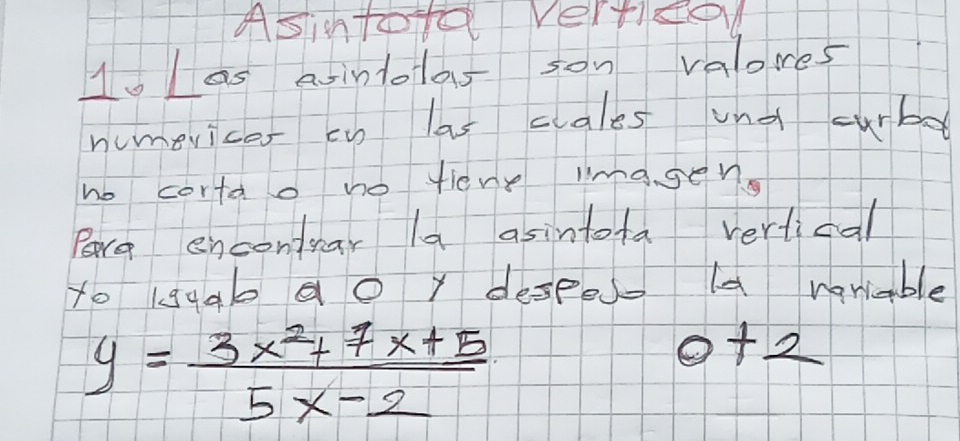 Asintota Vertical
1. Las asintotas son valores
numericos en las cuales una curba
no corta o no tiene imagen.
Para encontrar la asintota vertical
yo iguab a 0 y despejo la variable
y = 3x²+7x+5 0+2
5x-2